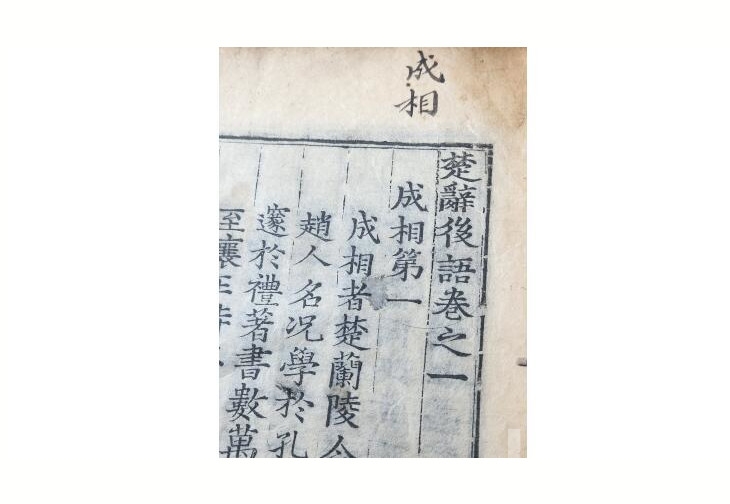 成相
楚辭後語卷之一
成相第一
成相者楚蘭陵令
趙人名况學於孔
邃於禮著書數萬
至襄王時